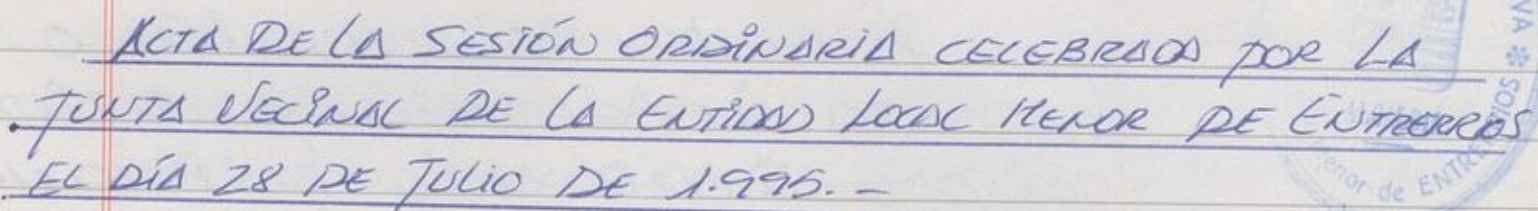 ACTA DE LA SESIÓN ORDINARIA CELEBRADA POR LA
JUNTA VECINAL DE LA ENTIDAD LOCAL MENOR DE ENTRERRIOS
EL DÍA 28 DE JULIO DE 1.995.-
VA * SOI
enor de ENTRE